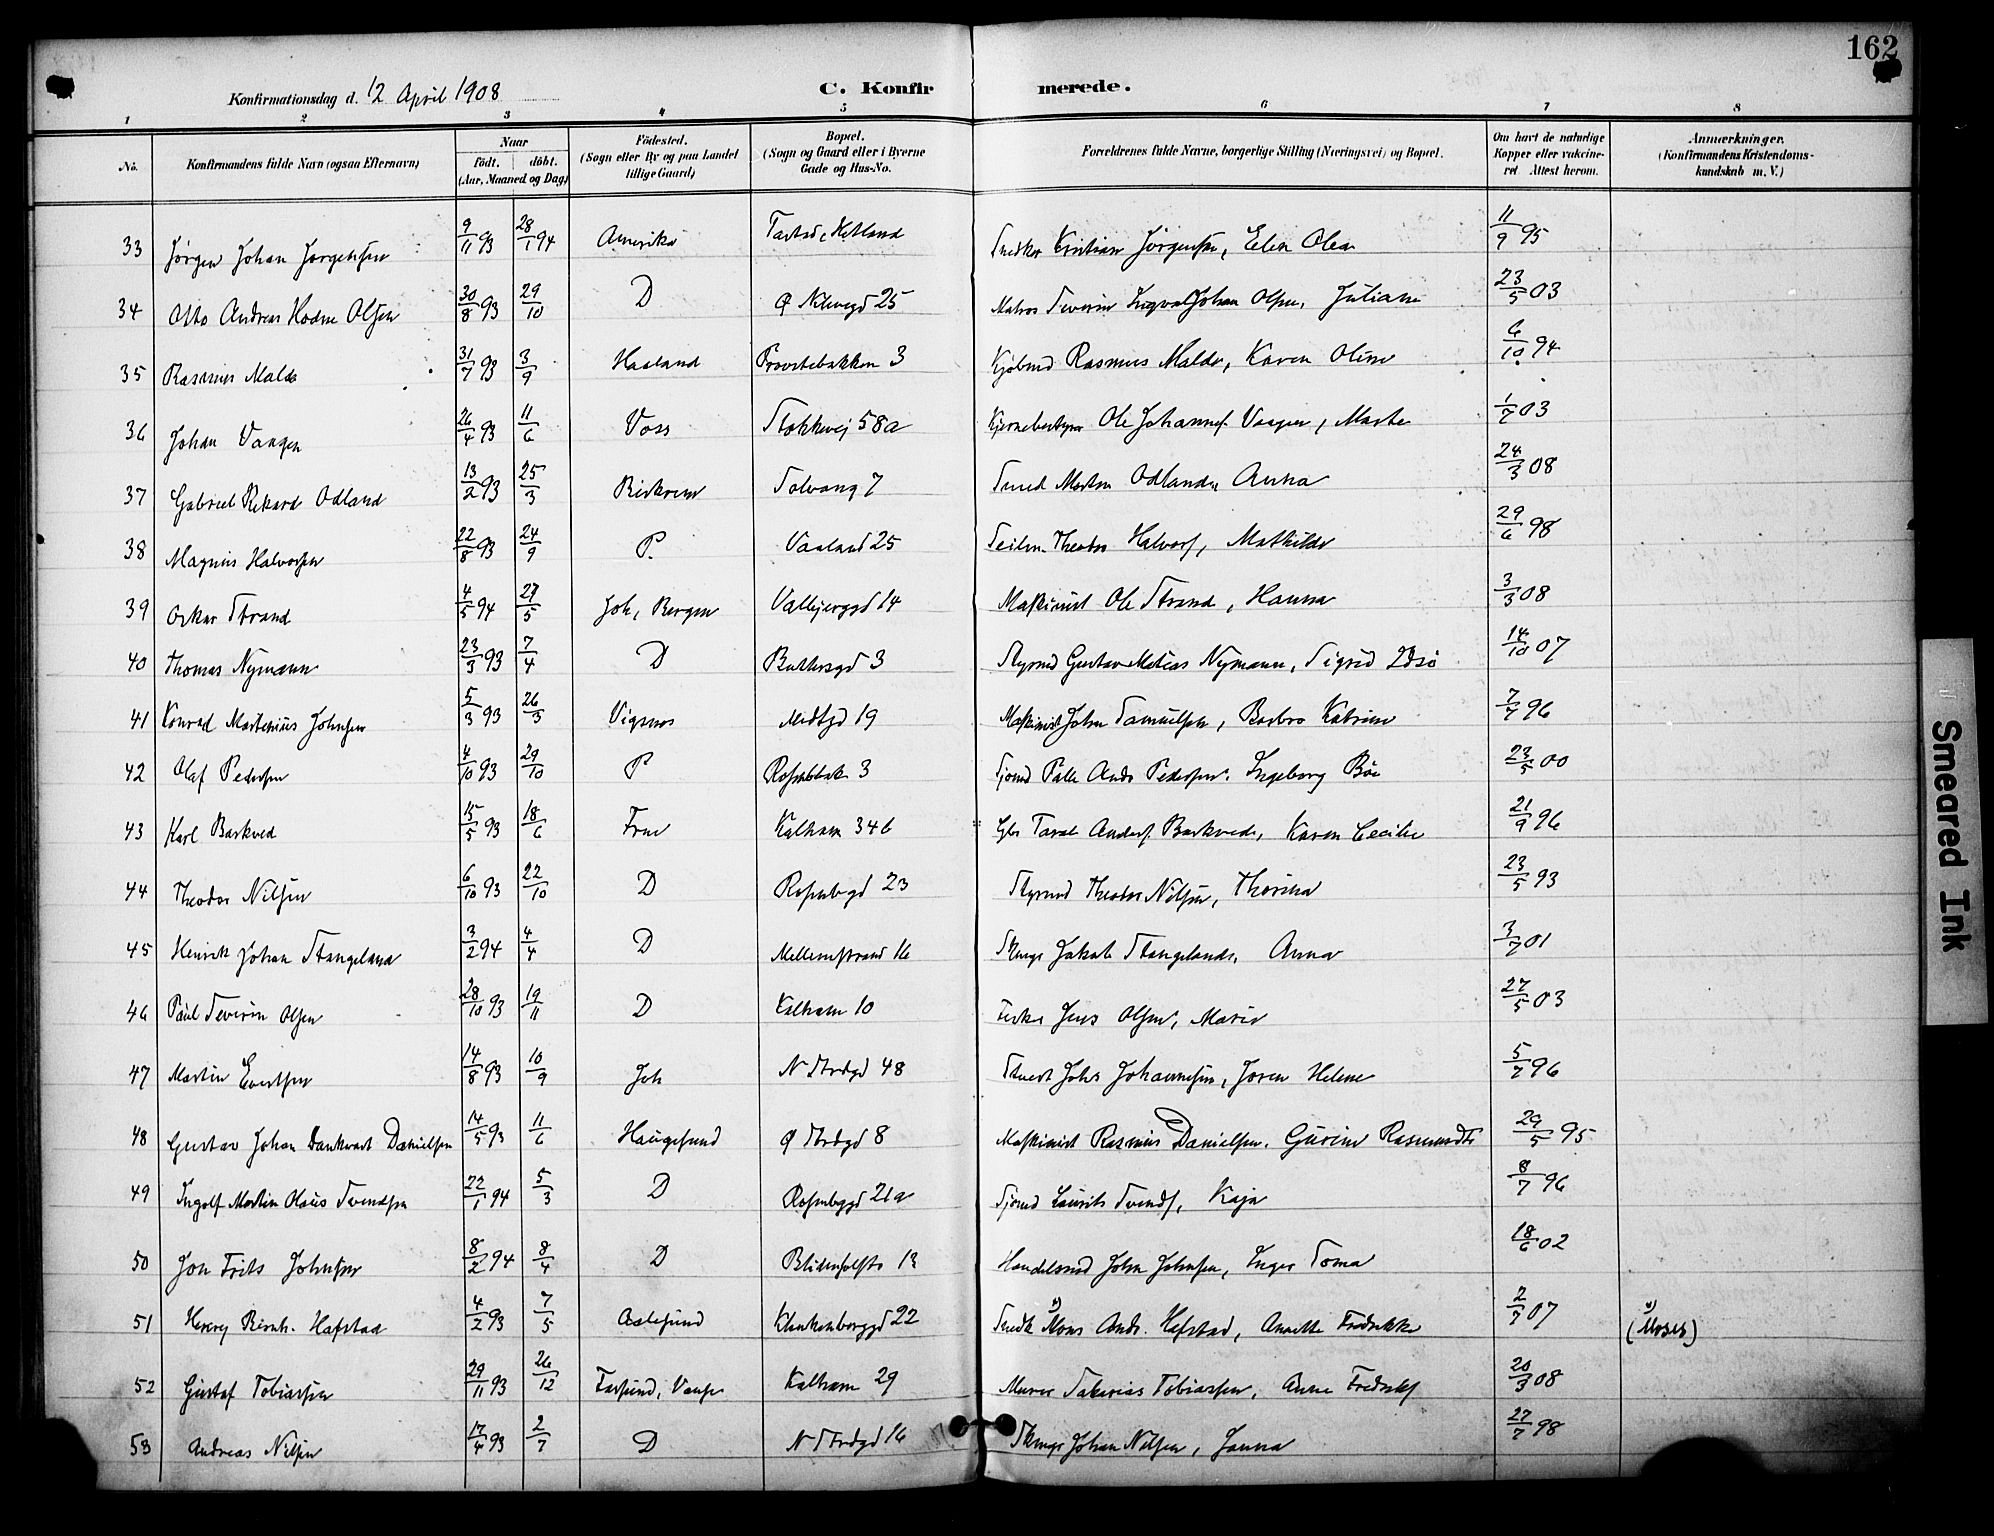 162
Konfirmationsdag d. 12 April 1908
C. Konfirmerede.
1 2 3 4 5 6 7 8
No. Konfirmandens fulde Navn (ogsaa Efternavn) Naar født. døbt. (Aar, Maaned og Dag) Fødested. (Sogn eller By og paa Landet tillige Gaard) Bopæl. (Sogn og Gaard eller i Byerne Gade og Hus-No. Forældrenes fulde Navne, borgerlige Stilling (Næringsvei) og Bopæl. Om havt de naturlige Kopper eller vakcineret Attest herom. Anmærkninger. (Konfirmandens Kristendomskundskab m. V.)
33 Jørgen Johan Jørgensen 9/11 93 28/1 94 Amerika Hetland Snedker Kristian Jørgensen, Elen Olea 11/9 95
34 Otto Andreas Hodne Olsen 30/8 93 29/10 D Ø 25 Matros Severin Ingvald Johan Olsen, Juliane 23/5 03
35 Rasmus Malde 31/7 93 3/9 Haaland Provstebakken 3 Kjøbmd Rasmus Malde, Karen Oline 6/10 94
36 Johan Vaagen 26/4 93 11/6 Voss Stokkevej 58a Ole Johannes. Vaagen, Marta 1/7 03
37 Gabriel Rikard Odland 13/2 93 25/3 Birkrem Solvang 7 Smed Morten Odland, Anna 24/3 08
38 Magnus Halvorsen 22/8 93 24/9 P. Vaaland 25 Seilm. Theodor Halvors, Mathilde 29/6 98
39 Oskar Strand 4/5 94 27/5 Joh, Bergen Valbjerggd 14 Maskinist Ole Strand, Hanna 3/3 08
40 Thomas Nymann 23/3 93 7/4 D 3 Styrmd Gustav Matias Nymann, Sigrid Idsø 14/10 07
41 Konrad Martenius Johnsen 5/3 93 26/3 Vigsnes Midtgd 19 Maskinist John Samuelsen, Barbro Katrine 7/7 96
42 Olaf Pedersen 4/10 93 29/10 P 3 Sjømd Palle Ands Pedersen. Ingeborg Bøe 23/5 00
43 Karl Barkved 15/5 93 18/6 Frue Kalham 346 Taral Anders. Barkved, Karen Cecilie 21/9 96
44 Theodor Nilsen 6/10 93 22/10 D Rosenbgd 23 Styrmd Theodor Nilsen, Thorina 23/5 93
45 Henrik Johan Stangeland 3/2 94 4/4 D Mellemstrand 16 Jakob Stangeland, Anna 3/7 01
46 Paul Severin Olsen 28/10 93 19/11 D Kalham 10 Jens Olsen, Marie 27/5 03
47 Martin Evertsen 14/8 93 10/9 Joh N Strdgd 48 Johs Johannesen, Joren Helene 5/7 96
48 Gustav Johan Dankvart Danielsen 14/5 93 11/6 Haugesund Ø Strdgd 8 Maskinist Rasmus Danielsen. Gurine Rasmusdtr 29/5 95
49 Ingolf Martin Olaus Svendsen 22/1 94 5/3 D Rosenbggd 21a Sjømd Laurits Svends, Kaja 8/7 96
50 Jon Frits Johnsen 8/2 94 8/4 D 13 Handelsmd John Johnsen, Inger Toma 18/6 02
51 Henrij Birnh. Hafstad 4/2 93 7/5 Aalesund Klinkenberggd 22 Snedk Mons Ands. Hafstad, Annette Fredrikke 2/7 07 (Moses)
52 Gustaf Tobiassen 29/11 93 26/12 Farsund, Vanse Kalham 29 Murer Sakarias Tobiassen, Anne 20/3 08
53 Andreas Nilsen 17/4 93 2/7 D N Strdgd 16 Johan Nilsen, Janna 27/7 98
Smeared Ink